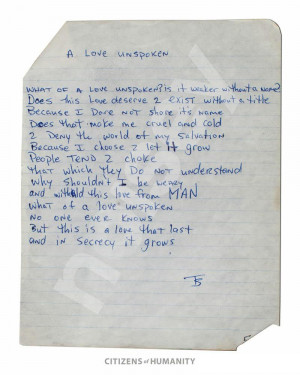 A Love UNSPOKEN
WHAT OF A LOVE UNSPOKEN? Is it weaker without a name?
Does this Love deserve 2 EXIST without a title
Because I Dare NOT share it's name
Does that make me cruel and cold
2 Deny the world of my salvation
Because I choose 2 let it grow
People TEND 2 choke
that which they Do NOT understand
Why shouldn't I be weary
and withhold this love from MAN
what of a love unspoken
no one ever knows
But this is a love that last
and in secrecy it grows
CITIZENS of HUMANITY